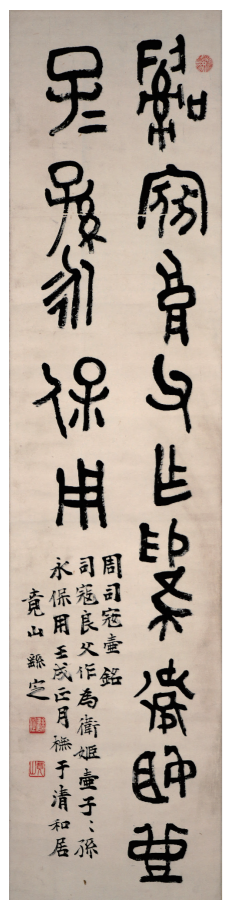 𤔲寇良父作為衛姬壺
子〻孫永保用
周司寇壺銘
司寇良父作為衛姬壺子〻孫
永保用壬戌正月橅于清和居
竟山繇定